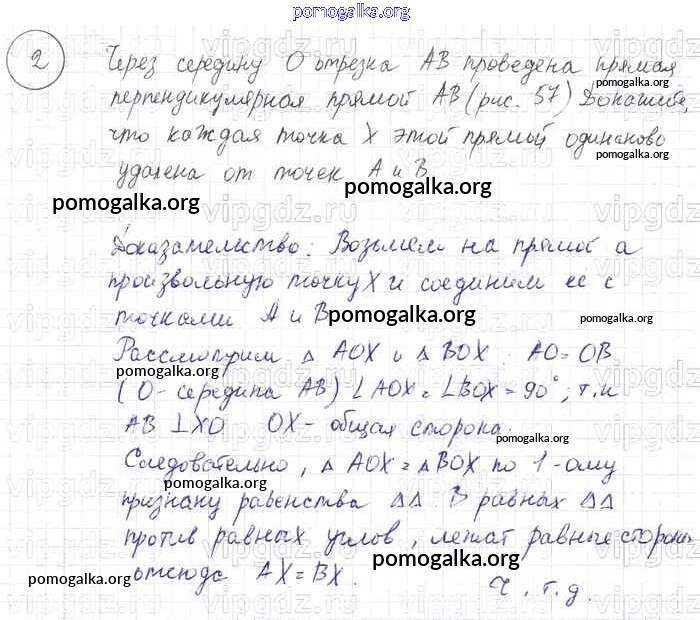 pomogalka.org
2
Через середину О отрезка АВ проведена прямая
pomogalka.org
перпендикулярная прямой АВ (рис. 57) Докажите,
что каждая точка X этой прямой одинаково
pomogalka.org
удалена от точек А и В
pomogalka.org
pomogalka.org
Доказательство: Возьмем на прямой а
произвольную точку X и соединим ее с
pomogalka.org
точками А и В
pomogalka.org
pomogalka.org
Рассмотрим △ AOX и △ BOX : AO = OB
pomogalka.org
(О - середина АВ) ∠AOX = ∠BOX = 90°, т.к
АВ ⊥ XO OX - общая сторона.
pomogalka.org
Следовательно, △ AOX = △ BOX по 1-ому
pomogalka.org
признаку равенства △△ В равных △△
против равных углов, лежат равные стороны
pomogalka.org
отсюда AX = BX.
pomogalka.org
Ч.т.д.
pomogalka.org